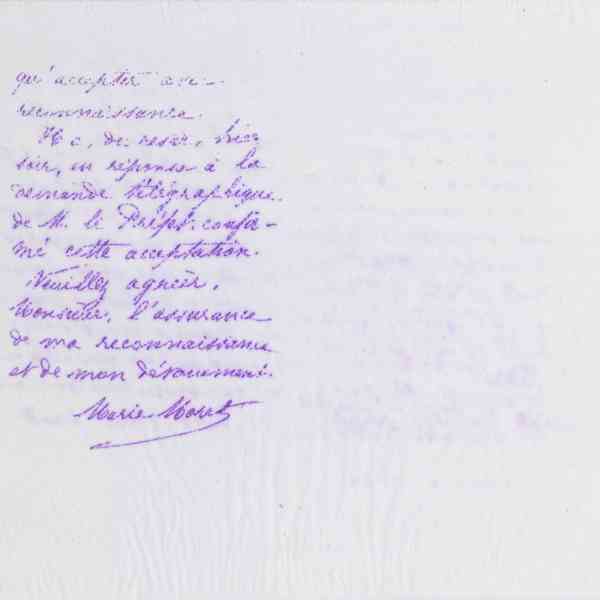 qu'accepter avec
reconnaissance.
Il a, du reste, hier
soir, en réponse à la
demande télégraphique
de M. le Préfet, confir-
mé cette acceptation.
Veuillez agréer,
Monsieur, l'assurance
de ma reconnaissance
et de mon dévouement.
Marie Moret